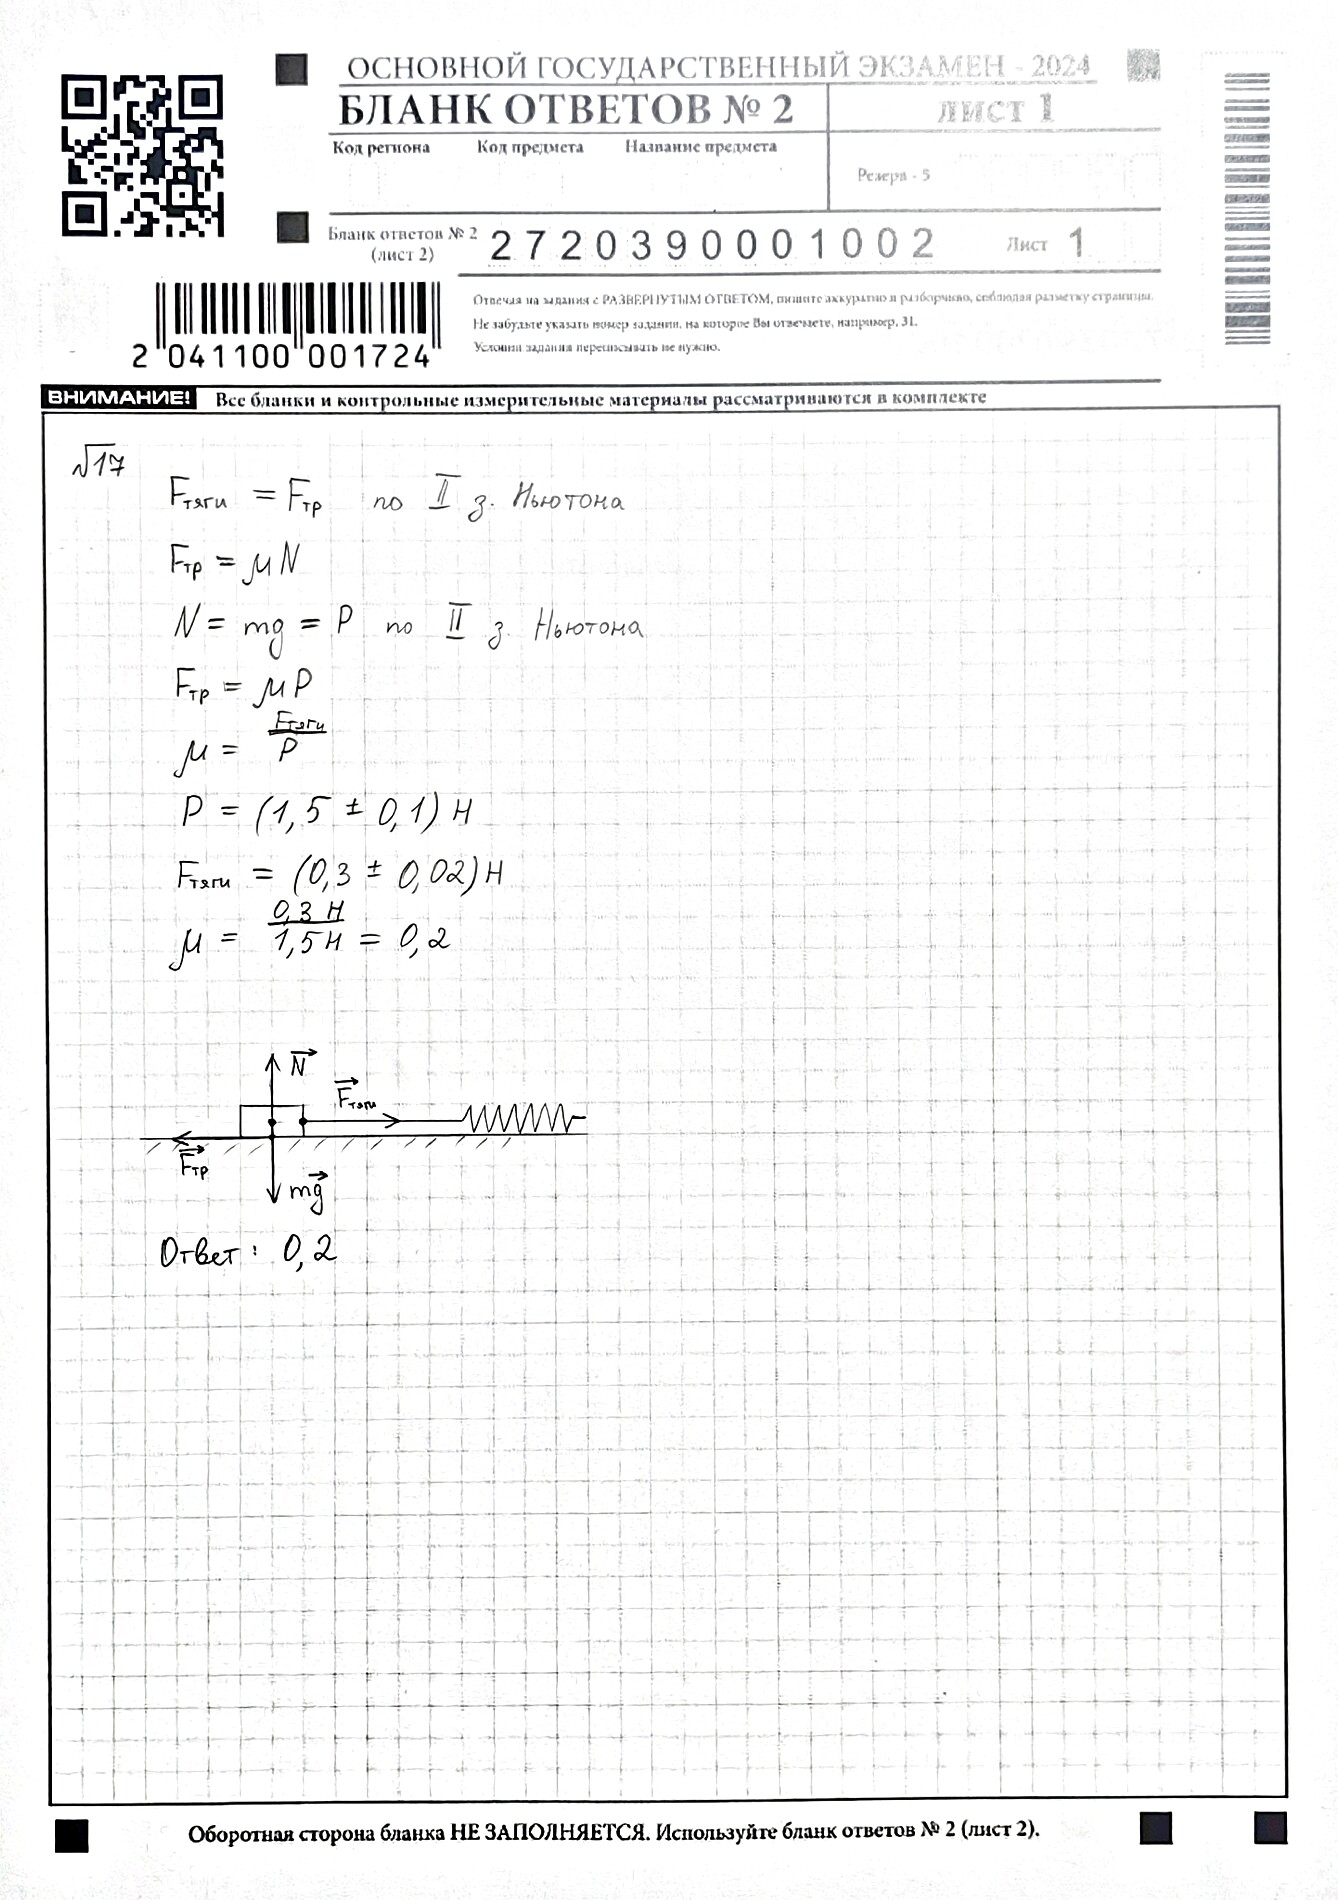 ОСНОВНОЙ ГОСУДАРСТВЕННЫЙ ЭКЗАМЕН - 2024
БЛАНК ОТВЕТОВ № 2
ЛИСТ 1
Код региона Код предмета Название предмета
Резерв - 5
Бланк ответов № 2 (лист 2) 2720390001002 Лист 1
Отвечая на задания с РАЗВЕРНУТЫМ ОТВЕТОМ, пишите аккуратно и разборчиво, соблюдая разметку страницы.
Не забудьте указать номер задания, на которое Вы отвечаете, например, 31.
Условия задания переписывать не нужно.
2 041100 001724
ВНИМАНИЕ! Все бланки и контрольные измерительные материалы рассматриваются в комплекте
√17
Fтяги = Fтр по II з. Ньютона
Fтр = μN
N = mg = P по II з. Ньютона
Fтр = μP
μ = Fтяги / P
P = (1,5 ± 0,1) Н
Fтяги = (0,3 ± 0,02) Н
μ = 0,3 Н / 1,5 Н = 0,2
N
Fтяги
Fтр
mg
Ответ: 0,2
Оборотная сторона бланка НЕ ЗАПОЛНЯЕТСЯ. Используйте бланк ответов № 2 (лист 2).